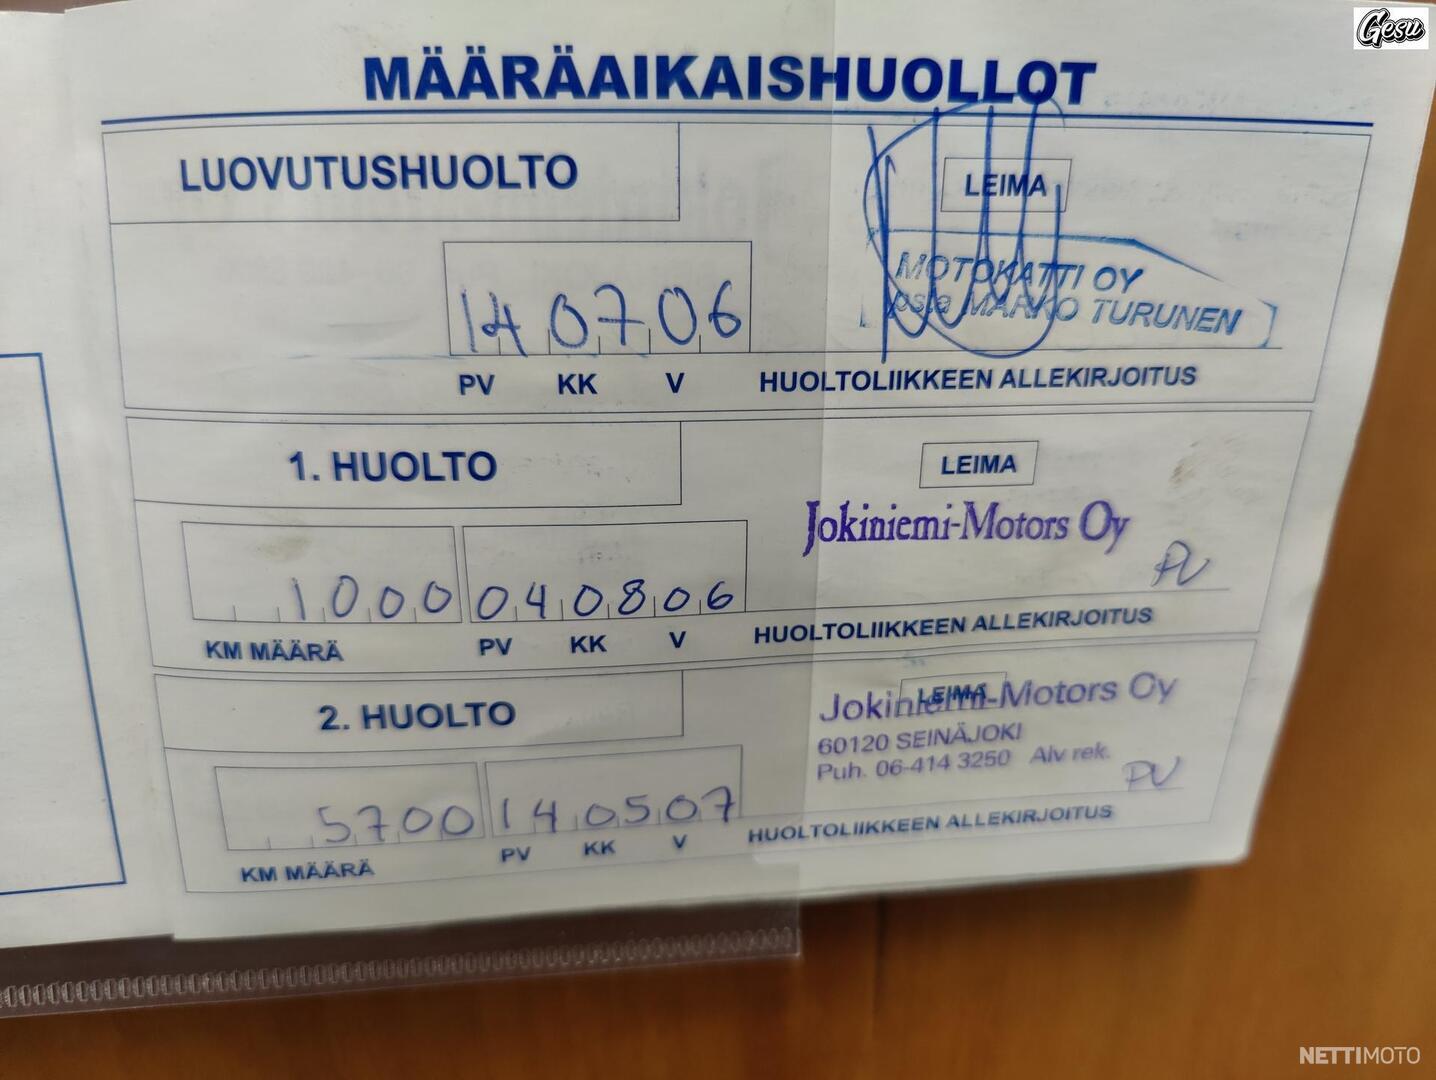 Gesu
MÄÄRÄAIKAISHUOLLOT
LUOVUTUSHUOLTO
LEIMA
MOTOKATTI OY
psta MARKO TURUNEN
14 07 06
PV KK V HUOLTOLIIKKEEN ALLEKIRJOITUS
1. HUOLTO
LEIMA
Jokiniemi-Motors Oy
PV
1000 04 08 06
KM MÄÄRÄ PV KK V HUOLTOLIIKKEEN ALLEKIRJOITUS
2. HUOLTO
LEIMA
Jokiniemi-Motors Oy
60120 SEINÄJOKI
Puh. 06-414 3250 Alv rek.
PV
5700 14 05 07
KM MÄÄRÄ PV KK V HUOLTOLIIKKEEN ALLEKIRJOITUS
NETTIMOTO